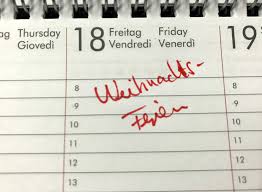 ag Thursday 18 Freitag Friday 19
Giovedì Vendredi Venerdì
8 8
9 Weihnachts- 9
10 Ferien 10
11 11
12 12
13 13